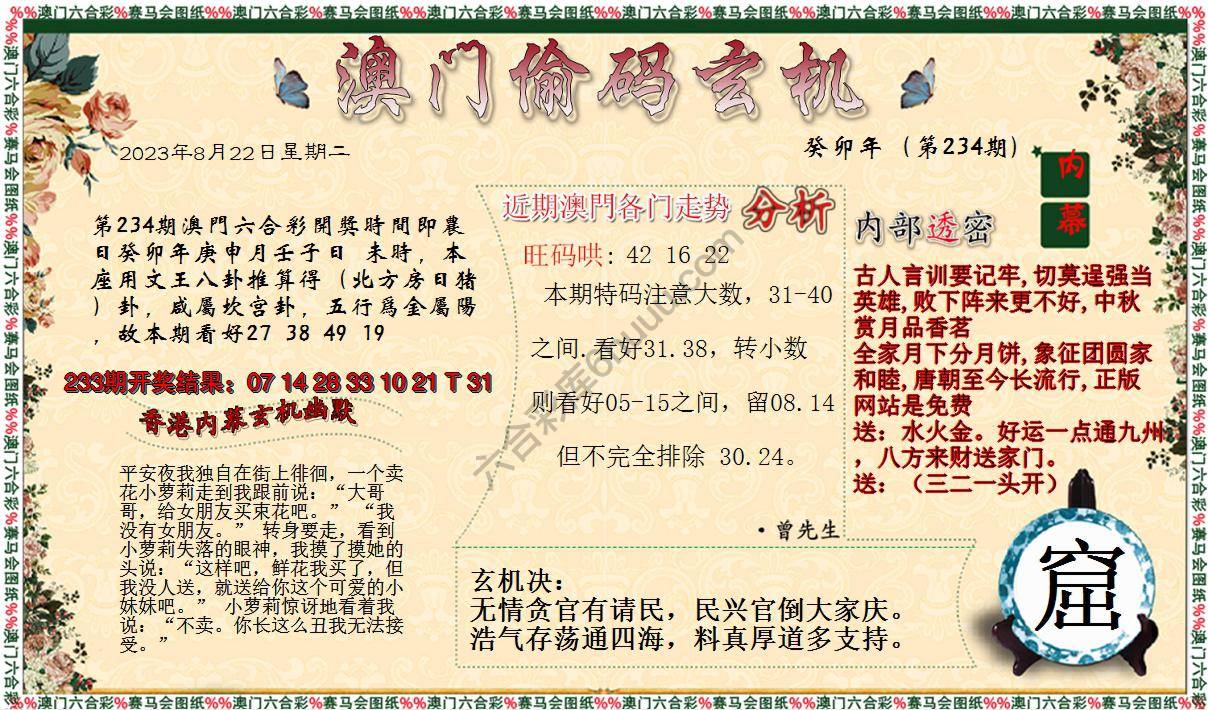 %%澳门六合彩%赛马会图纸%%澳门六合彩%赛马会图纸%%澳门六合彩%赛马会图纸%%澳门六合彩%赛马会图纸%%澳门六合彩%赛马会图纸%%澳门六合彩%赛马会图纸%%
澳门偷码玄机
2023年8月22日星期二
癸卯年（第234期）
内
幕
第234期澳門六合彩開獎時間即農
日癸卯年庚申月壬子日 未時，本
座用文王八卦推算得（北方房日猪
）卦，咸屬坎宫卦，五行爲金屬陽
，故本期看好27 38 49 19
233期开奖结果：07 14 28 33 10 21 T 31
香港内幕玄机幽默
平安夜我独自在街上徘徊，一个卖
花小萝莉走到我跟前说：“大哥
哥，给女朋友买束花吧。” “我
没有女朋友。” 转身要走，看到
小萝莉失落的眼神，我摸了摸她的
头说：“这样吧，鲜花我买了，但
我没人送，就送给你这个可爱的小
妹妹吧。” 小萝莉惊讶地看着我
说：“不卖。你长这么丑我无法接
受。”
近期澳門各门走势 分析
旺码哄: 42 16 22
本期特码注意大数，31-40
之间.看好31.38，转小数
则看好05-15之间，留08.14
但不完全排除 30.24。
·曾先生
内部透密
古人言训要记牢,切莫逞强当
英雄,败下阵来更不好,中秋
赏月品香茗
全家月下分月饼,象征团圆家
和睦,唐朝至今长流行,正版
网站是免费
送：水火金。好运一点通九州
，八方来财送家门。
送：（三二一头开）
玄机决：
无情贪官有请民，民兴官倒大家庆。
浩气存荡通四海，料真厚道多支持。
窟
%%澳门六合彩%赛马会图纸%%澳门六合彩%赛马会图纸%%澳门六合彩%赛马会图纸%%澳门六合彩%赛马会图纸%%澳门六合彩%赛马会图纸%%澳门六合彩%赛马会图纸%%